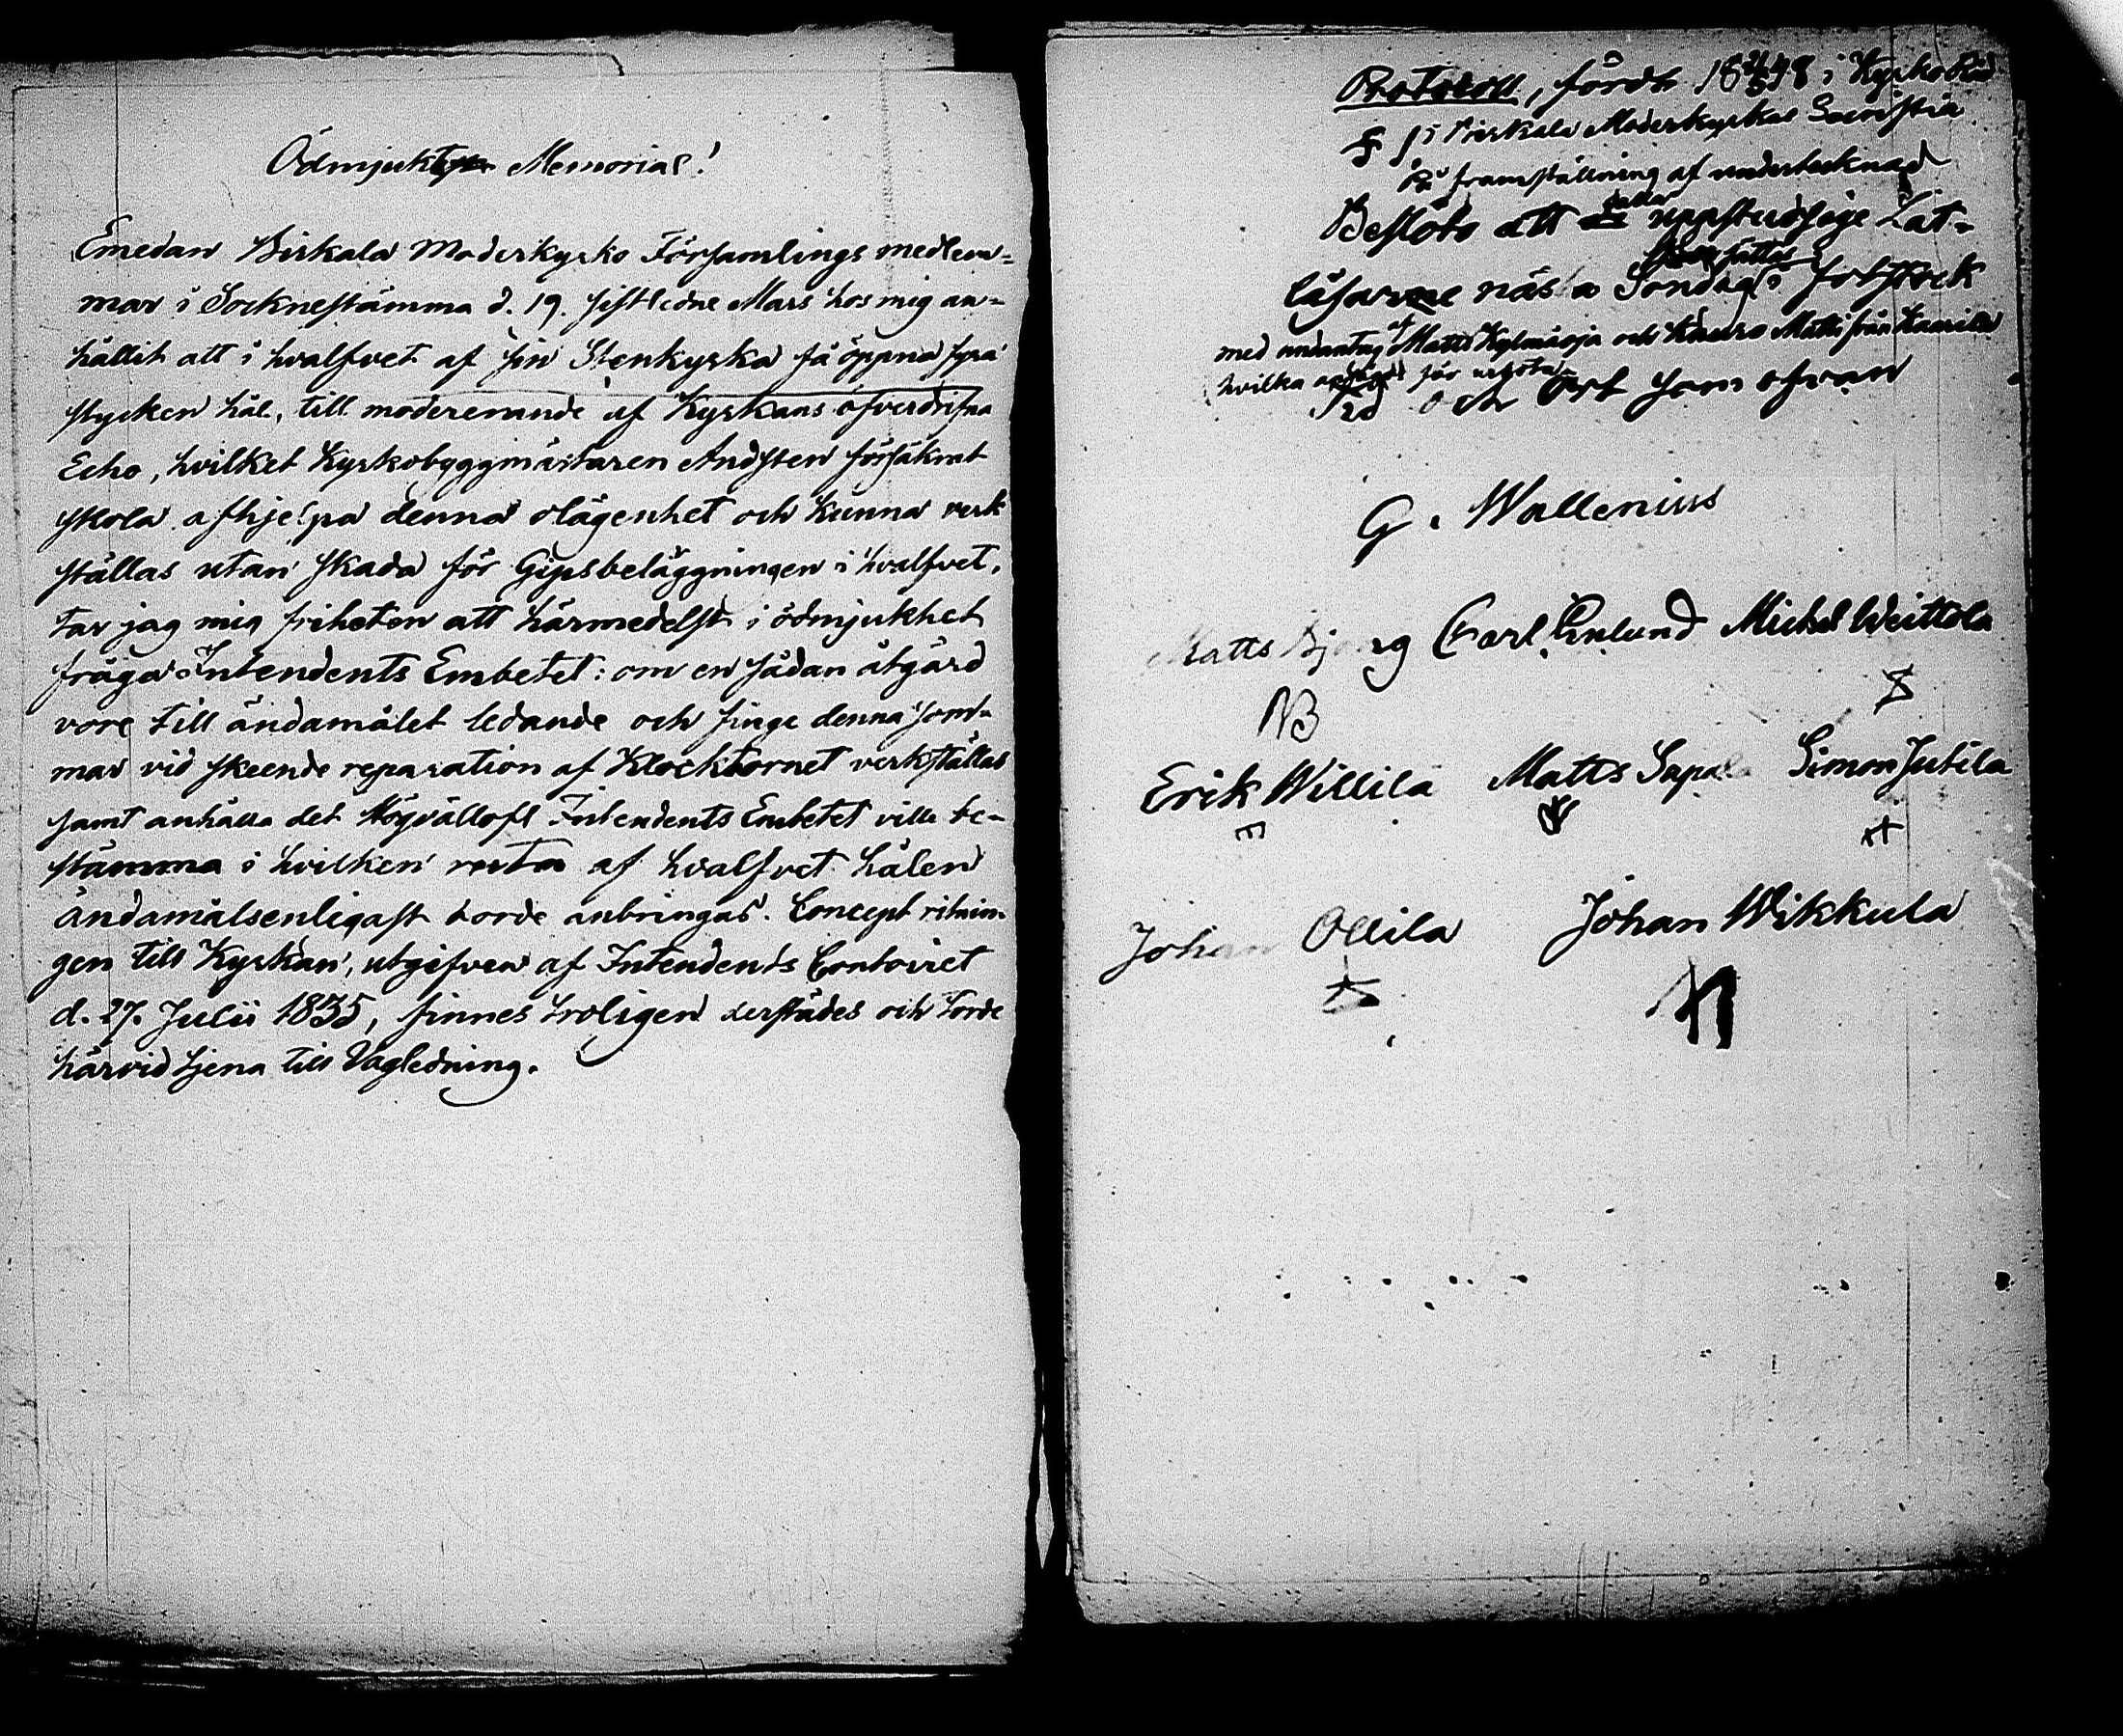 Ödmjukt Memorial!
Emedan Birkala Moderkyrko Församlings medlem=
mar i Socknestämma d. 19. sistledne Mars hos mig an=
hållit att i hvalfvet af sin Stenkyrka få öppna fyra
stycken hål, till modererande af Kyrkans öfverdrifna
Echo, hvilket Kyrkobyggmästaren Andsten försäkrat
skola afhjelpa denna olägenhet och kunna verk
ställas utan skada för Gipsbeläggningen i hvalfvet,
tar jag mig friheten att härmedelst i ödmjukhet
fråga Intendents Embetet: om en sådan åtgärd
vore till ändamålet ledande och finge denna som=
mar vid skeende reparation af Klocktornet verkställas
samt anhålla det Högvällofl Intendents Embetet ville be=
stämma i hvilken ruta af hvalfvet hålen
ändamålsenligast torde anbringas. Concept ritnin=
gen till Kyrkan, utgifven af Intendents Contoiret
d. 27. Julii 1835, finnes troligen derstädes och torde
härvid tjena till Vägledning.
Protocoll, fördt 18 48 i Kyrkoråd
i Birkala Moderkyrkas Sacristia
På framställning af undertecknad
Beslöts att uppstudsige Lät=
läsarne nästa Söndag i fotstock
med undantag af Matts Kylmäoja och Knuuro Matti från Kaarila
hvilka för urbota
Tid och Ort som ofvan
G. Wallenius
Matts Carl Enlund Michel Weittola
NB
Erik Willilä Matts Sapala Simon Jutila
Johan Ollila Johan Wikkula